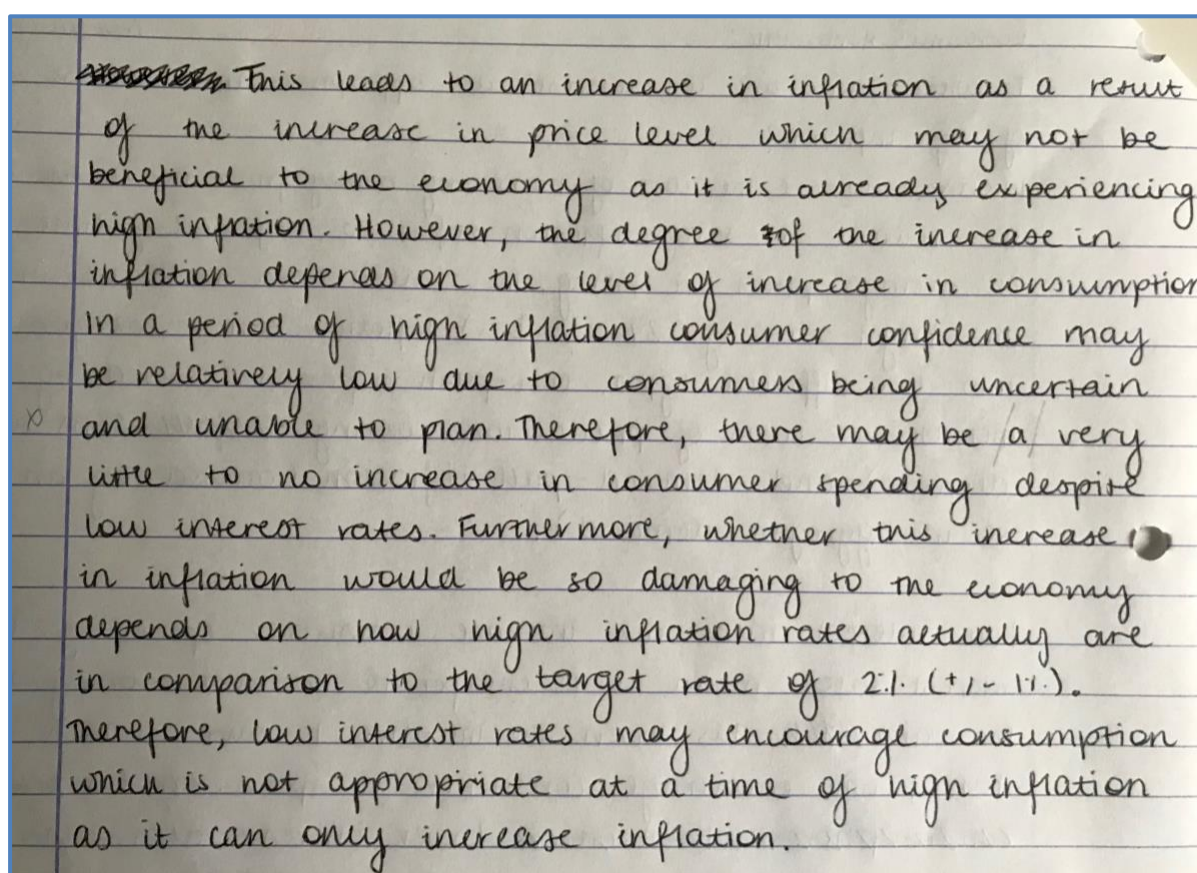 This leads to an increase in inflation as a result
of the increase in price level which may not be
beneficial to the economy as it is already experiencing
high inflation. However, the degree of the increase in
inflation depends on the level of increase in consumption
in a period of high inflation consumer confidence may
be relatively low due to consumers being uncertain
and unable to plan. Therefore, there may be a very
little to no increase in consumer spending despite
low interest rates. Furthermore, whether this increase
in inflation would be so damaging to the economy
depends on how high inflation rates actually are
in comparison to the target rate of 2% (+/- 1%).
Therefore, low interest rates may encourage consumption
which is not appropriate at a time of high inflation
as it can only increase inflation.